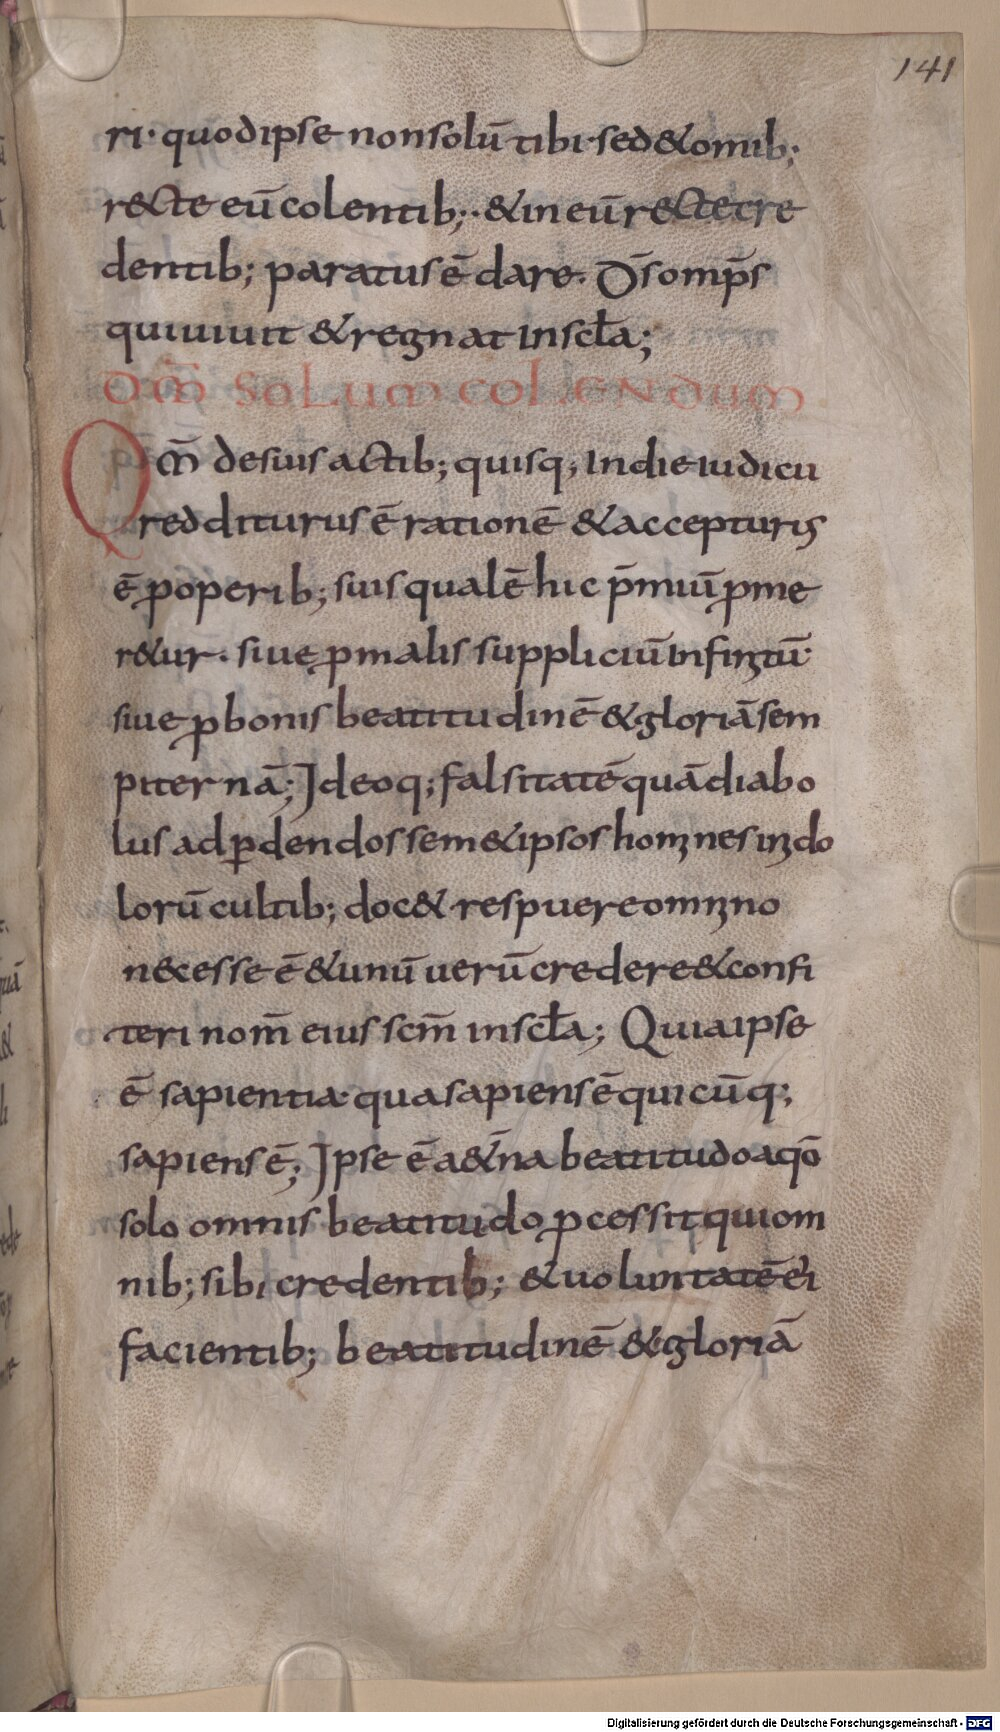 141
ri· quod ipse non solū tibi· sed & omib;
recte eū colentib;· & in eū recte cre
dentib; paratus ē dare. Ds̄ omp̄s
qui uiuit & regnat in scl̄a;
DM̄ SOLUM COLENDUM
Qm̄ de suis actib; quisq; in die iudicii
redditurus ē rationē & accepturus
ē ꝓ operib; suis qualē hic p̄miū ꝓme
r&ur. siue ꝓ malis suppliciū infinitū·
siue ꝓ bonis beatitudinē & gloriā sem
piternā; Ideoq; falsitatē quā diabo
lus ad ꝑdendos sem&ipsos homines in do
lorū cultib; doc& respuere omnino
necesse ē & unū uerū credere & confi
teri nom̄ eius scm̄ in scl̄a; Quia ipse
ē sapientia· qua sapiens ē quicūq;
sapiens ē; Ipse ē a&̄na beatitudo a q̄o
solo omnis beatitudo ꝓcessit qui om
nib; sibi credentib; & uoluntatē ei
facientib; beatitudinē & gloriā
Digitalisierung gefördert durch die Deutsche Forschungsgemeinschaft - DFG